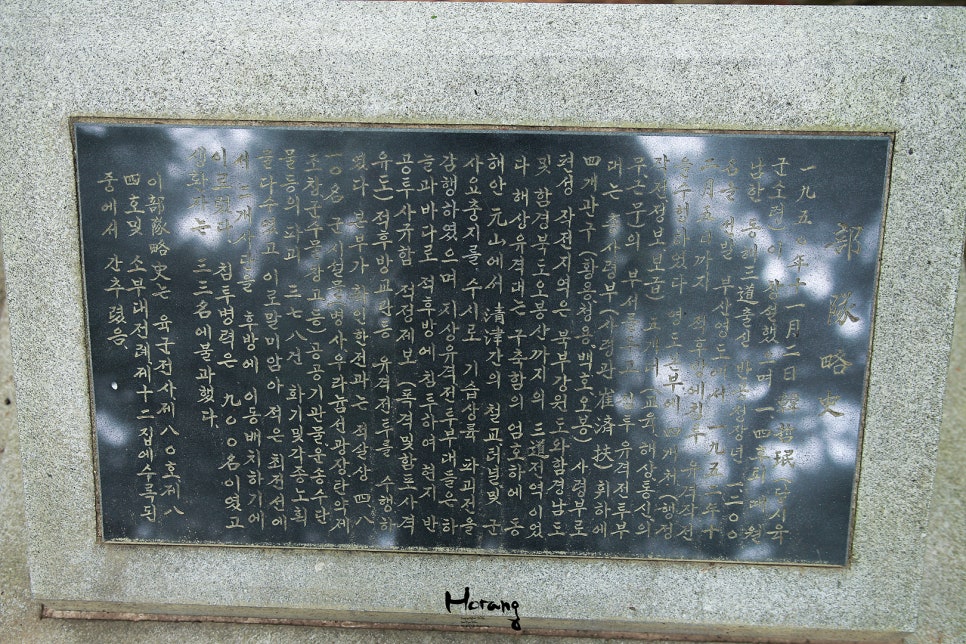 部隊略史
一九五〇年十一月二日 (당시육
군소령)이 창설했으며 一四후퇴때 월
남한 동해三道출신 반공청장년 一二〇〇
명을 선발 부산영도에다 一九五二年十
까지 적후방에침투 유격작전
을수행하였다 영도본부에 四개처(행정
작전정보보급) 교육 해상통신의
무근무)의 부서를두고 유격전투부
대는 총사령부(사령관崔済扶)휘하에
四개관구(광웅청웅.백호오봉) 사령부로
편성 작전지역은 북부강원도와함경남도
및 함경북도오봉산까지의 三道전역이었
다 해상유격대는 구축함의 엄호하에 동
해안 元山에서 清津간의 철교터널및 군
사요충지를 수시로 기습상륙 파괴전을
감행하였으며 지상유격전투부대들은 하
늘과바다로 적후방에 침투하여 현지 반
공투사규합 적정제보(폭격및함포사격
유도)적후방교란등 유격전투를 수행하
였다 본부가 확인한전과는 적살상 四八
一〇名 군시설물병사우라늄선광장탄약제
조창군수물창고등)공공기관물운송수단
물등의파괴 三七八건 화기및각종노획
물다수였고 이로말미암아 적은 최전선에
서 三개사단을 후방에 이동배치하기에
이르렀다 침투병력은 九〇〇名이였고
생환자는 三三名에불과했다.
이部隊略史는 육군전사제八〇호제八
四호및 소부대전례제十二집에수록된
중에서 간추렸음.
Horang